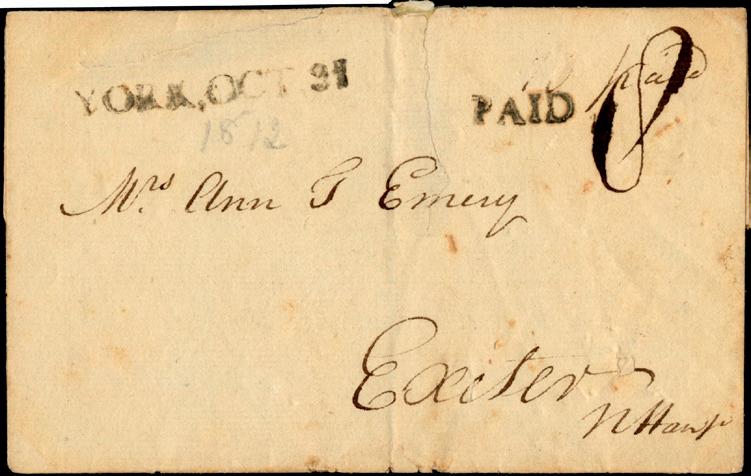 YORK, OCT 31
1812
PAID
paid
8
Mrs. Ann T Emery
Exeter
N Hamp